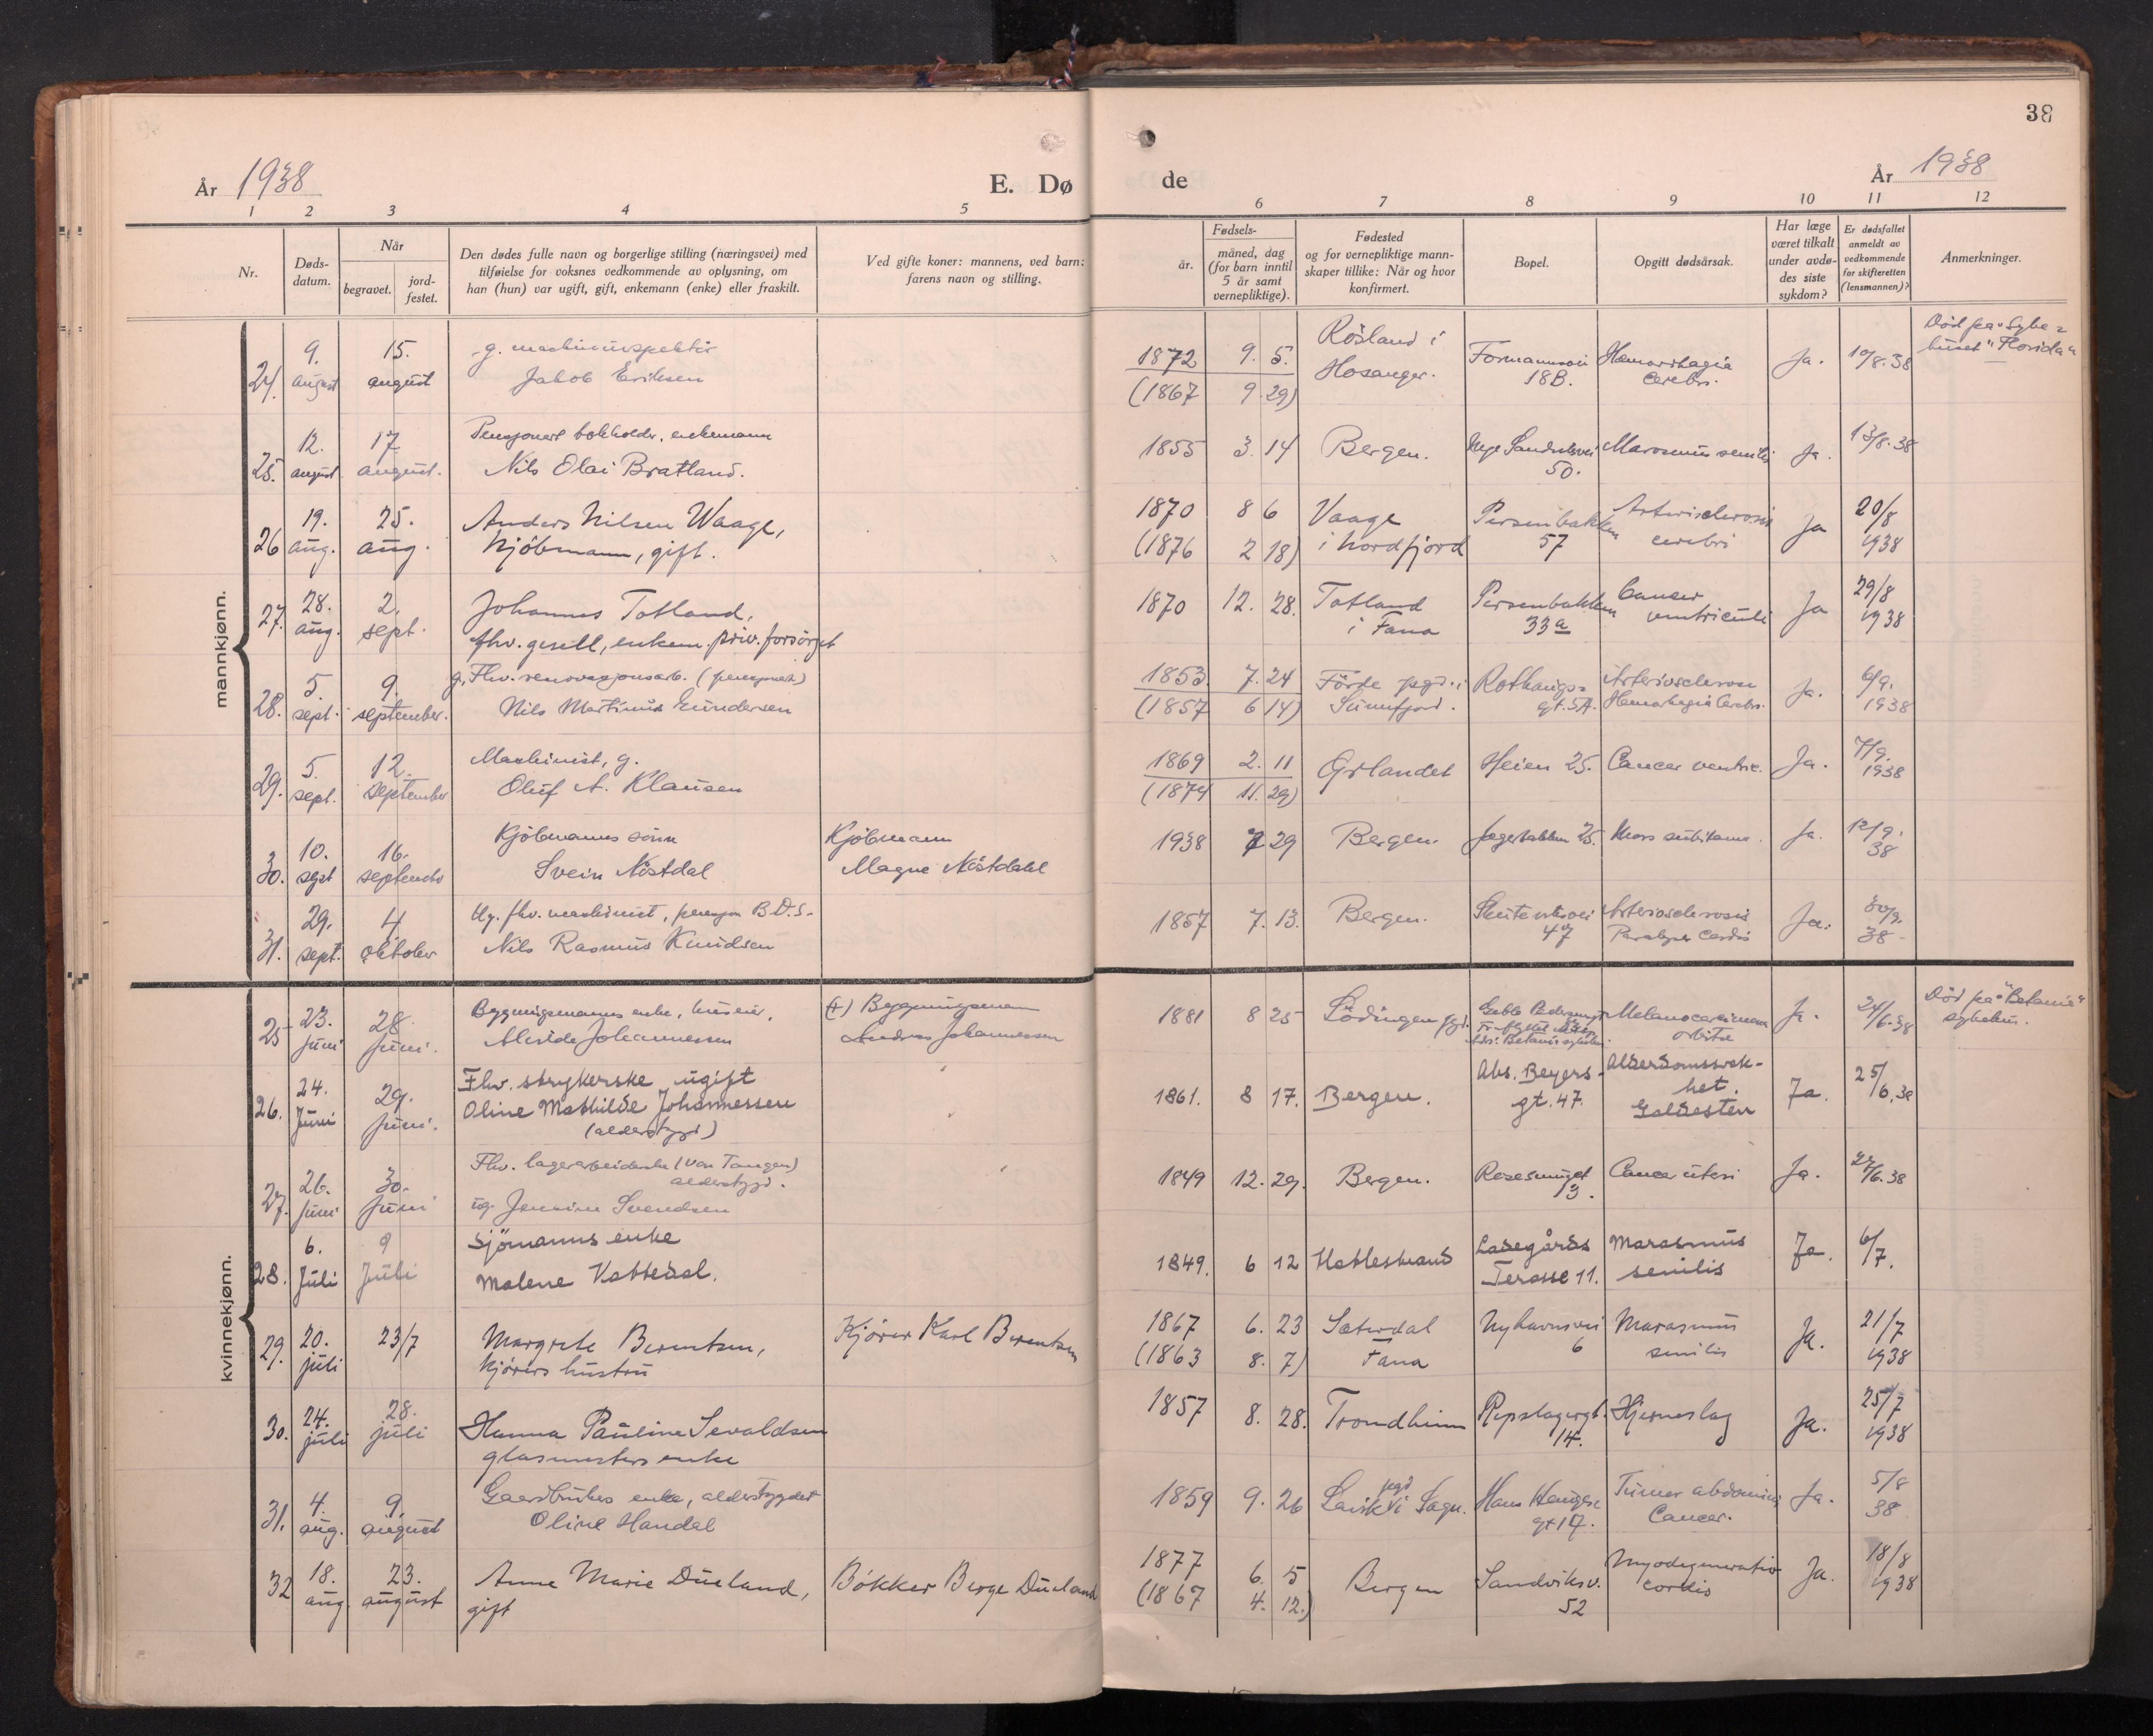 38
År 1938
E. Dø
de
År 1938
1 2 3 4 5
6 7 8 9 10 11 12
Nr.
Døds-
datum.
Når
begravet.
jord-
festet.
Den dødes fulle navn og borgerlige stilling (næringsvei) med
tilføielse for voksnes vedkommende av oplysning, om
han (hun) var ugift, gift, enkemann (enke) eller fraskilt.
Ved gifte koner: mannens, ved barn:
farens navn og stilling.
Fødsels-
år.
måned, dag
(for barn inntil
5 år samt
vernepliktige).
Fødested
og for vernepliktige mann-
skaper tillike: Når og hvor
konfirmert.
Bopel.
Opgitt dødsårsak.
Har læge
været tilkalt
under avdø-
des siste
sykdom?
Er dødsfallet
anmeldt av
vedkommende
for skifteretten
(lensmannen)?
Anmerkninger.
mannkjønn.
24. 9. august 15. august
g. maskininspektør
Jakob Eriksen
1872 9. 5.
(1867 9. 29)
Rösland i
Hosanger.
Formannsvei
18B.
Hemorrhagia
cerebri.
Ja. 10/8. 38
Död på Syke=
huset "Florida"
25. 12. august 17 august.
Pensjonert bokholder, enkemann
Nils Olai Bratland.
1855 3. 14 Bergen.
Nye Sandviksvei
50.
Marasmus senilis
Ja. 13/8. 38
26 19. aug. 25. aug.
Anders Nilsen Waage,
kjøbmann, gift.
1870 8 6
(1876 2 18)
Vaage
i Nordfjord
Persenbakken
57
Arterisclerosis
cerebri
Ja 20/8
1938
27. 28. aug. 2. sept.
Johannes Totland,
fhv. gesell, enkem. priv. forsørget
1870 12. 28.
Totland
i Fana
Persenbakken
33a
Cancer
ventriculi
Ja 29/8
1938
28. 5. sept. 9. september.
g. Fhv. renovasjonsarb. (pensjonert)
Nils Martinus Gundersen
1853. 7. 24
(1857 6 14)
Förde pgd. i
Sunnfjord.
Rothaugs=
gt. 5A.
Arteriosclerose
Hemorhagia Cerebri.
Ja. 6/9.
1938
29. 5. sept. 12. september
Maskinist, g.
Oluf A. Klausen
1869 2. 11
(1874 11. 29)
Heien 25. Cancer ventric. Ja. 7/9.
1938
30. 10. sept 16. september
Kjöbmanns sönn
Svein Nöstdal
Kjöbmann
Magne Nöstdahl
1938 7 29 Bergen. Jægerbakken 25. Mors subitanea. Ja. 12/9.
38
31. 29. sept. 4. oktober
Ug. fhv. maskinist, pensjon B.D.S.
Nils Rasmus Knudsen
1857 7. 13. Bergen.
Skuteviksvei
47
Arteriosclerosis
Paralysis Cordis
Ja. 30/9.
38
kvinnekjønn.
25 23. Juni 28. Juni.
Bygningsmanns enke, huseier,
Alvilde Johannessen
(+) Bygningsmann
Andreas Johannessen
1881 8 25 Lödingen pgd.
Melanocarcinom
orbitæ
Ja. 24/6. 38
Död på "Betania"
sykehus.
26. 24. Juni 29. Juni.
Fhv. strykerske ugift
Oline Mathilde Johannessen
(alderstrygd)
1861. 8 17. Bergen.
Abs. Beyers-
gt. 47.
Alderdomssvek-
het.
Galdesten
Ja. 25/6. 38
27. 26. Juni 30. Juni
Fhv. lagerarbeiderske (von Tangen)
alderstrygd.
ug. Jensine Svendsen
1849 12. 29. Bergen.
Rosesmuget
3.
Cancer uteri
Ja. 27/6. 38
28. 6. Juli 9 Juli
Sjömanns enke
Malene Vattedal.
1849. 6 12 Hatlestrand
Ladegårds
Terasse 11.
Marasmus
senilis
Ja. 6/7.
29. 20. juli 23/7
Margrete Berentsen,
kjørers hustru
Kjører Karl Berentsen
1867 6. 23
(1863 8. 7)
Sæterdal
Fana
Nyhavnsvei
6
Marasmus
senilis
Ja. 21/7
1938
30. 24. juli 28. juli
Hanna Pauline Sevaldsen
glasmesters enke
1857 8. 28. Trondheim
Repslagergt.
14.
Hjerneslag
Ja. 25/7
1938
31. 4. aug. 9. august
Gaardbrukers enke, alderstrygdet
Oline Handal
1859 9. 26 Lavik pgd i Sogn.
Hans Hauges
gt 17.
Tumor abdominis
Cancer.
Ja. 5/8
38
32 18. aug. 23. august
Anne Marie Dueland,
gift
Bøkker Berge Dueland
1877 6. 5
(1867 4. 12.)
Bergen
Sandviksv.
52
Myodegeneratio
cordis
Ja. 18/8
1938